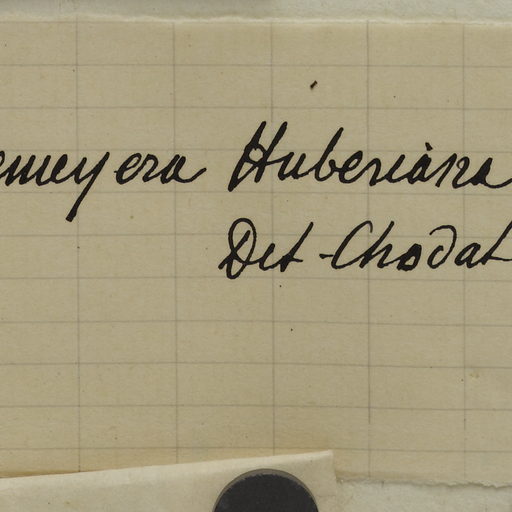 emeyera Huberiana
Det. Chodat